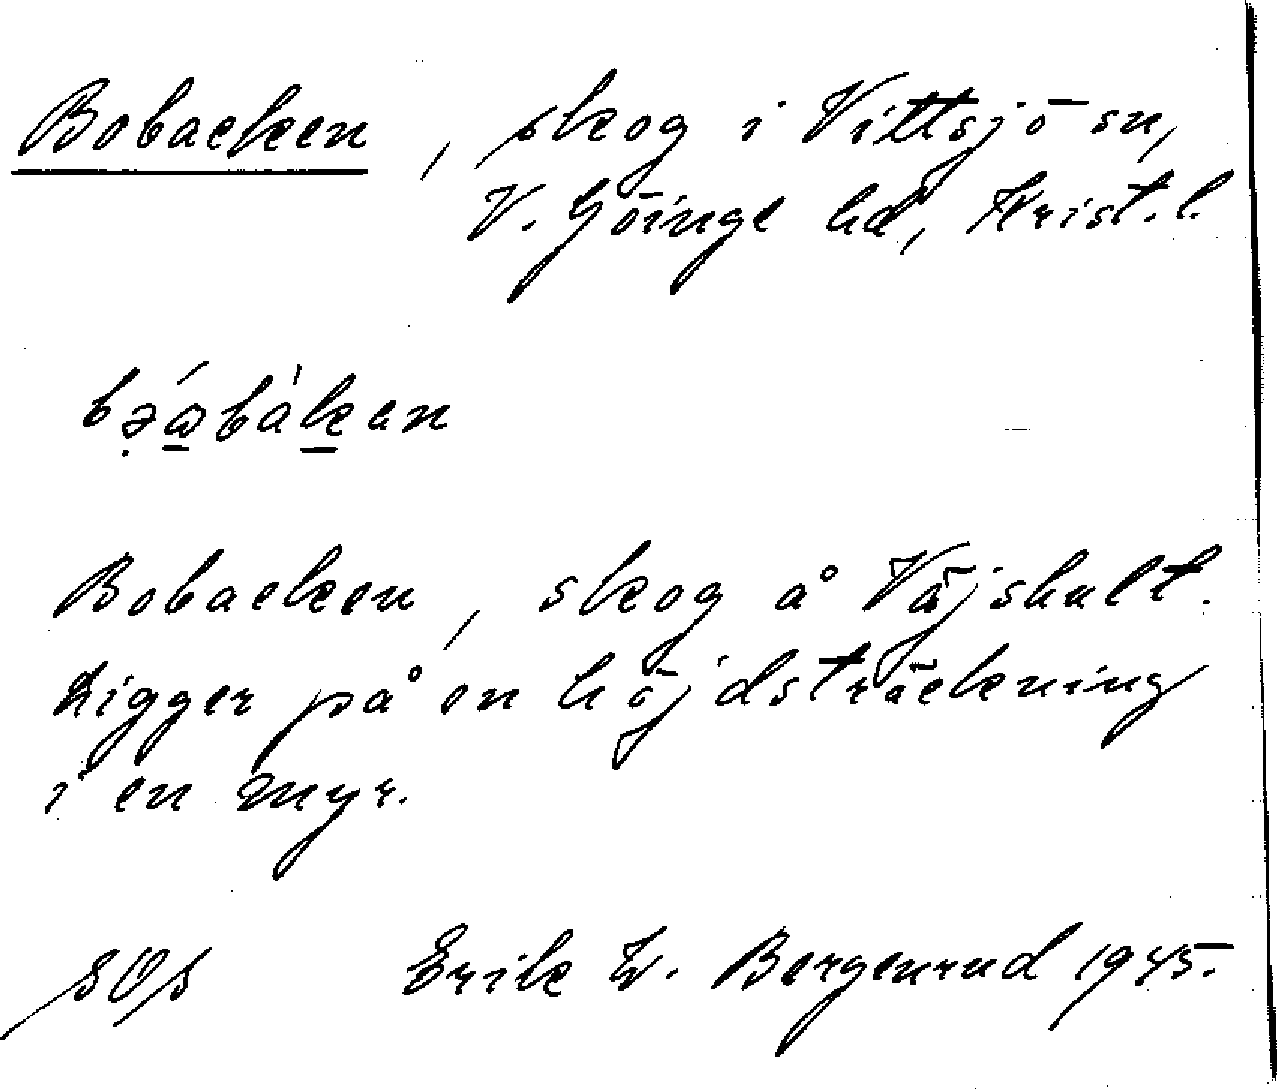 Bobacken, skog i Vittsjö sn,
V. Göinge hd, Krist.l.
Bobacken, skog å Väjshult.
Ligger på en höjdsträckning
i en myr.
Erik W. Bergenrud 1945.